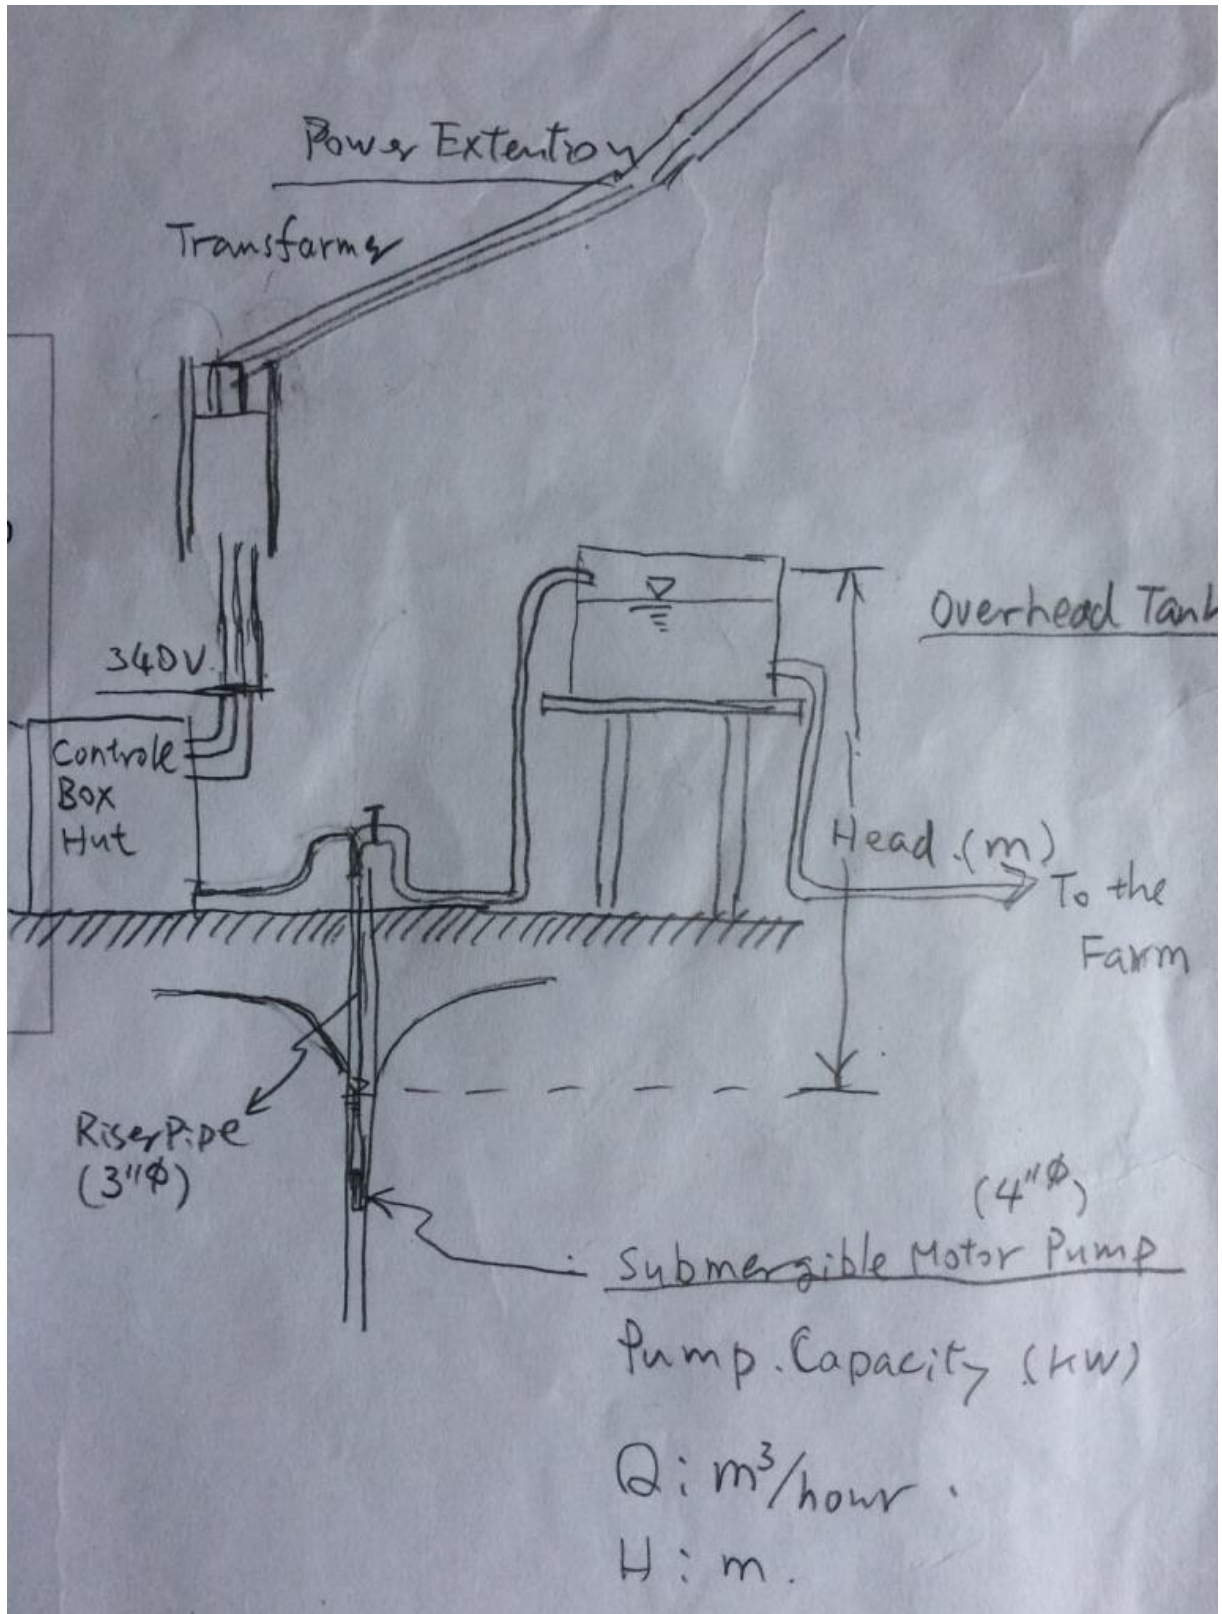 Power Extention
Transfarmer
Overhead Tank
340V.
Controle
Box
Hut
Head.(m)
To the
Farm
Riser Pipe
(3"φ)
(4"φ)
Submergible Motor Pump
Pump. Capacity (KW)
Q: m³/hour.
H: m.